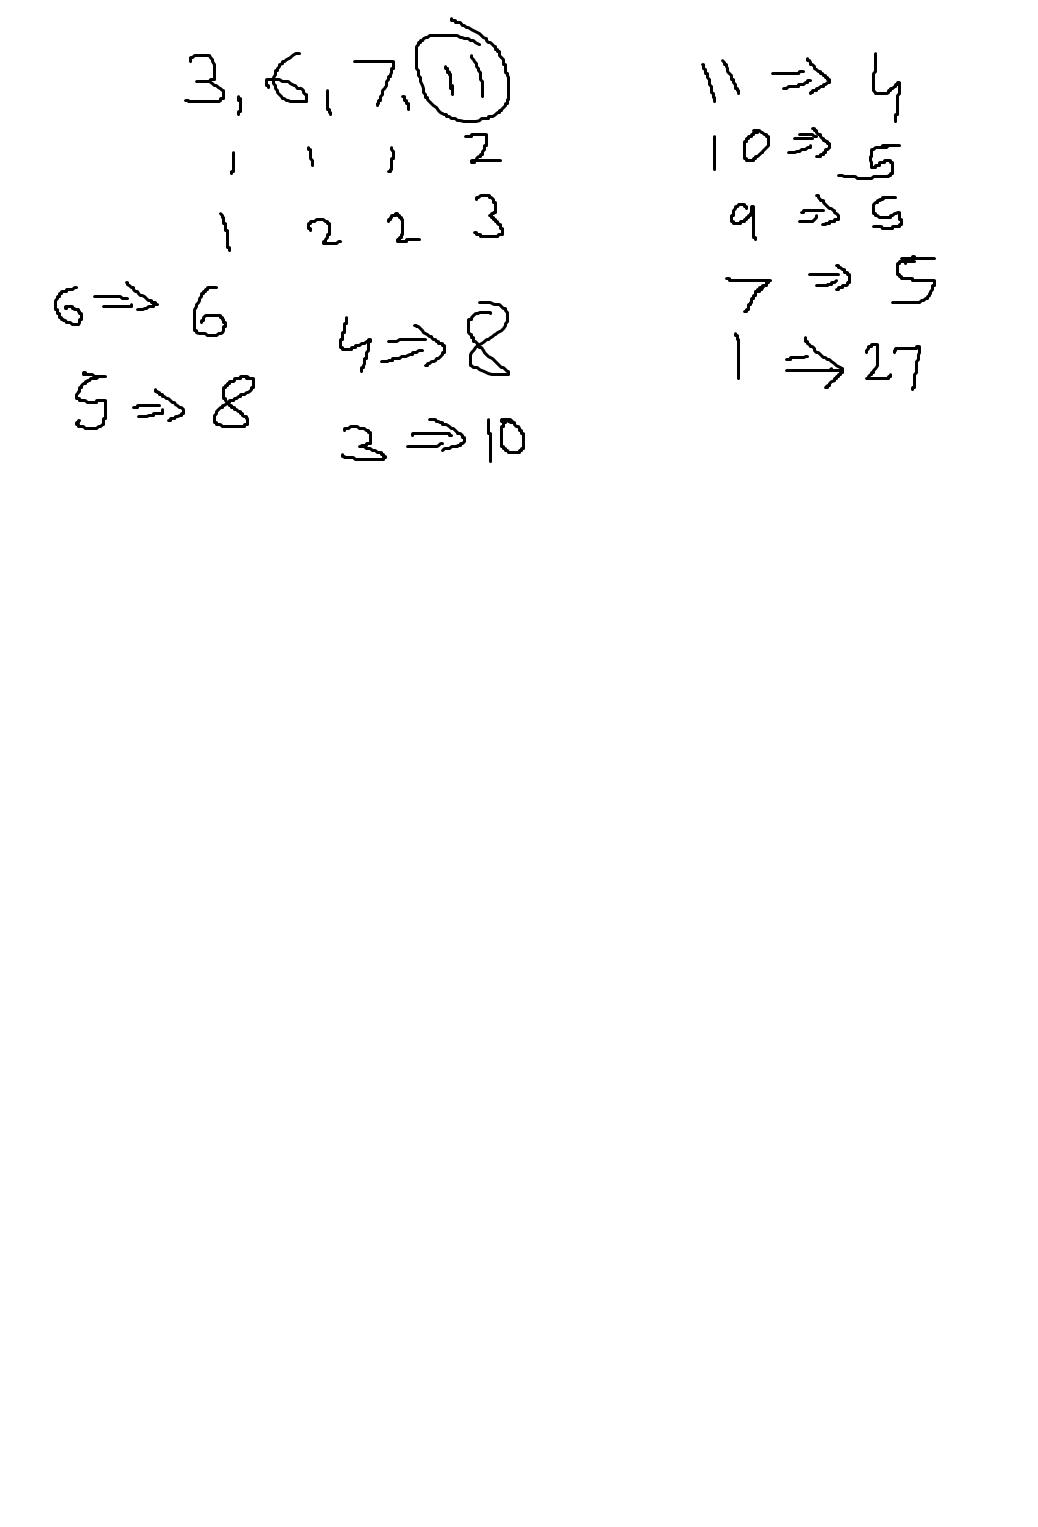 3, 6, 7, 11
1 1 1 2
1 2 2 3
6 ⇒ 6
5 ⇒ 8
4 ⇒ 8
3 ⇒ 10
11 ⇒ 4
10 ⇒ 5
9 ⇒ 5
7 ⇒ 5
1 ⇒ 27